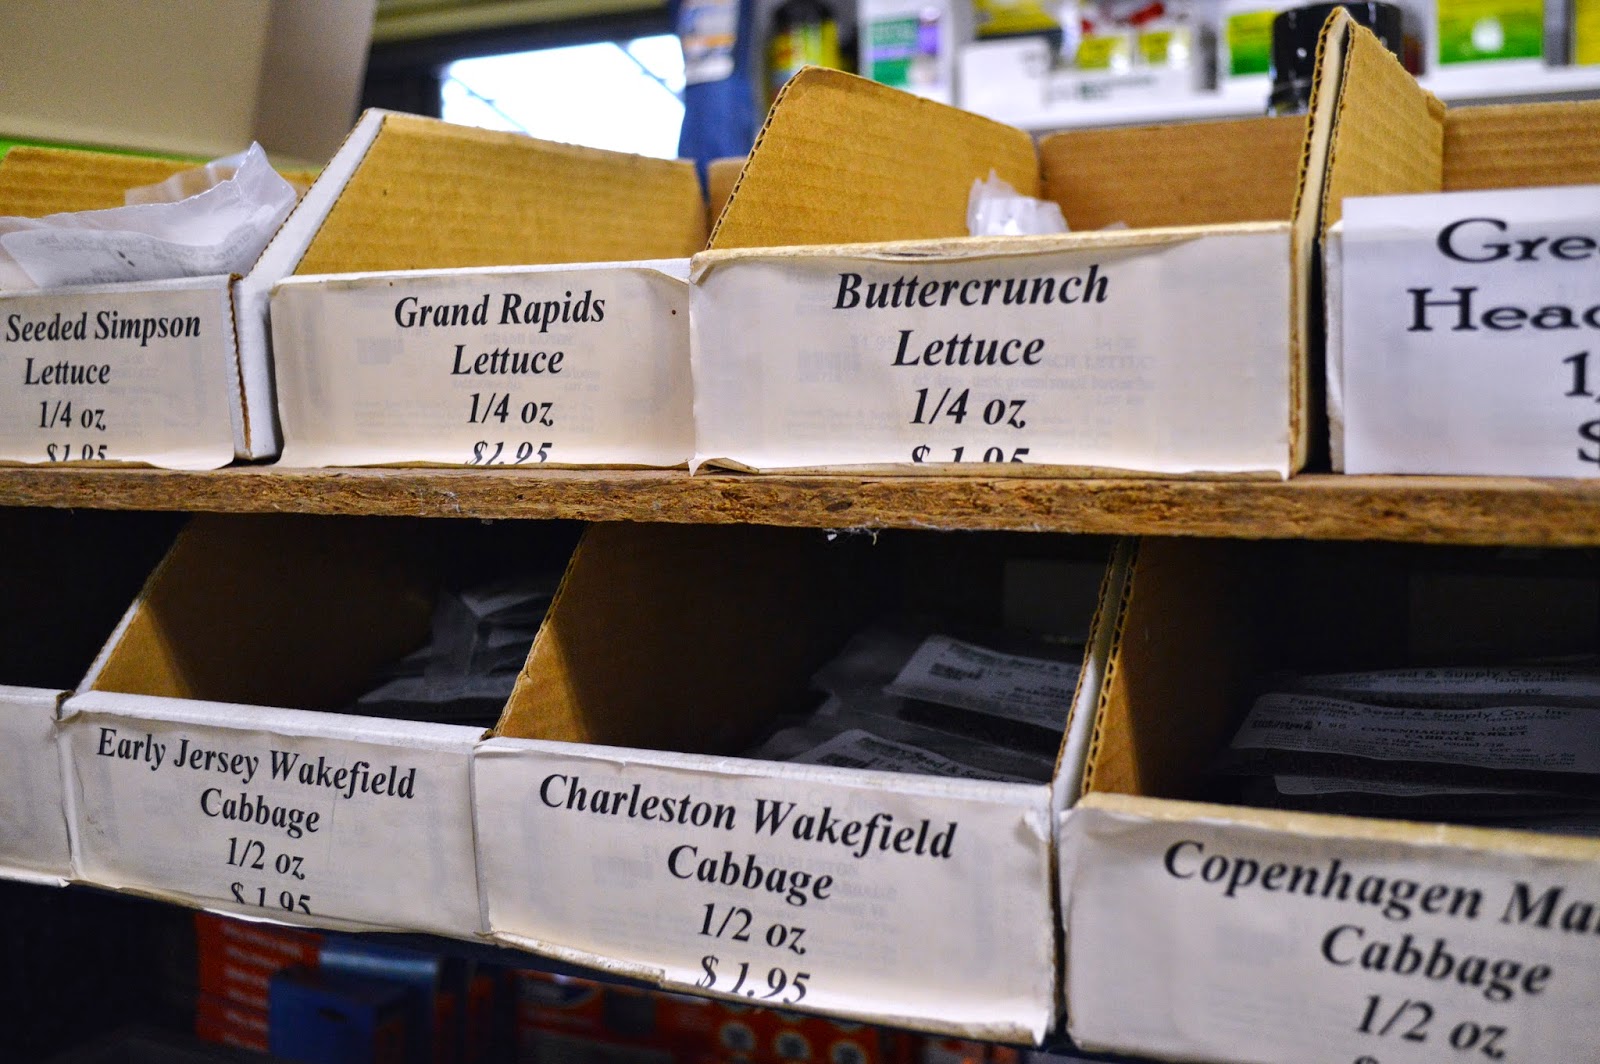 Seeded Simpson
Lettuce
1/4 oz
$1.95
Grand Rapids
Lettuce
1/4 oz
$1.95
Buttercrunch
Lettuce
1/4 oz
$ 1.95
Gre
Head
1/
$
Early Jersey Wakefield
Cabbage
1/2 oz
$1.95
Charleston Wakefield
Cabbage
1/2 oz
$1.95
Farmers Seed & Supply Co., Inc
COPENHAGEN MARKET
CABBAGE
Copenhagen Ma
Cabbage
1/2 oz